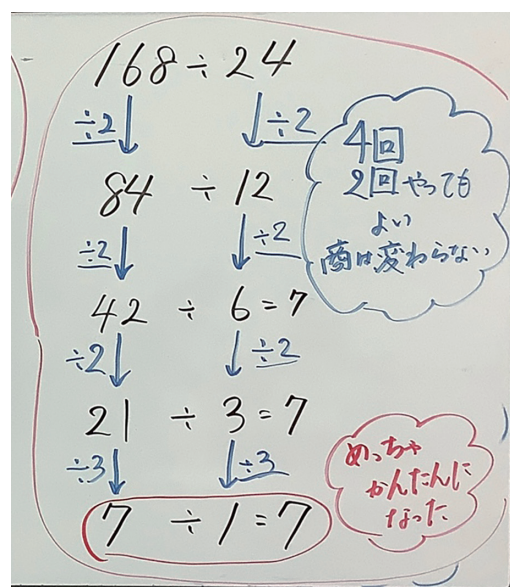 168 ÷ 24
÷2 ↓ ↓ ÷2
84 ÷ 12
÷2 ↓ ↓ ÷2
42 ÷ 6 = 7
÷2 ↓ ↓ ÷2
21 ÷ 3 = 7
÷3 ↓ ↓ ÷3
7 ÷ 1 = 7
4回
2回やっても
よい
商は変わらない
めっちゃ
かんたんに
なった